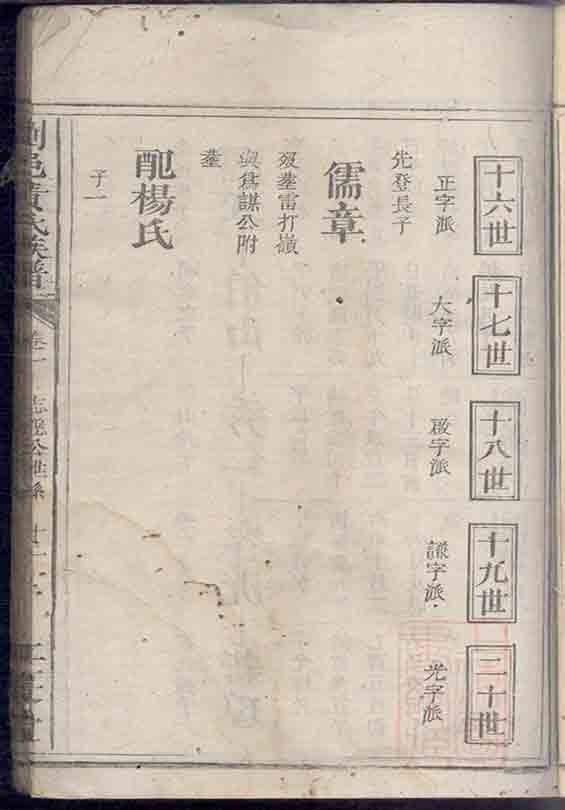 十六世
十七世
十八世
十九世
二十世
正字派
大字派
啟字派
謙字派
光字派
先登長子
儒章
歿塟雷打嶺
與爲謀公附
塟
配楊氏
子一
瀏邑黃氏族譜
卷一
志遠公世系